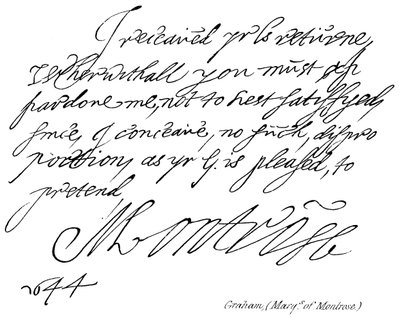 I receaved yr ls returne
wherwithall you must
pardone me, not to rest satisfyed,
since, I conceave, no such, dispro
portion, as yr L. is pleased, to
pretend,
Montrose
1644
Graham, (Marq.s of Montrose.)